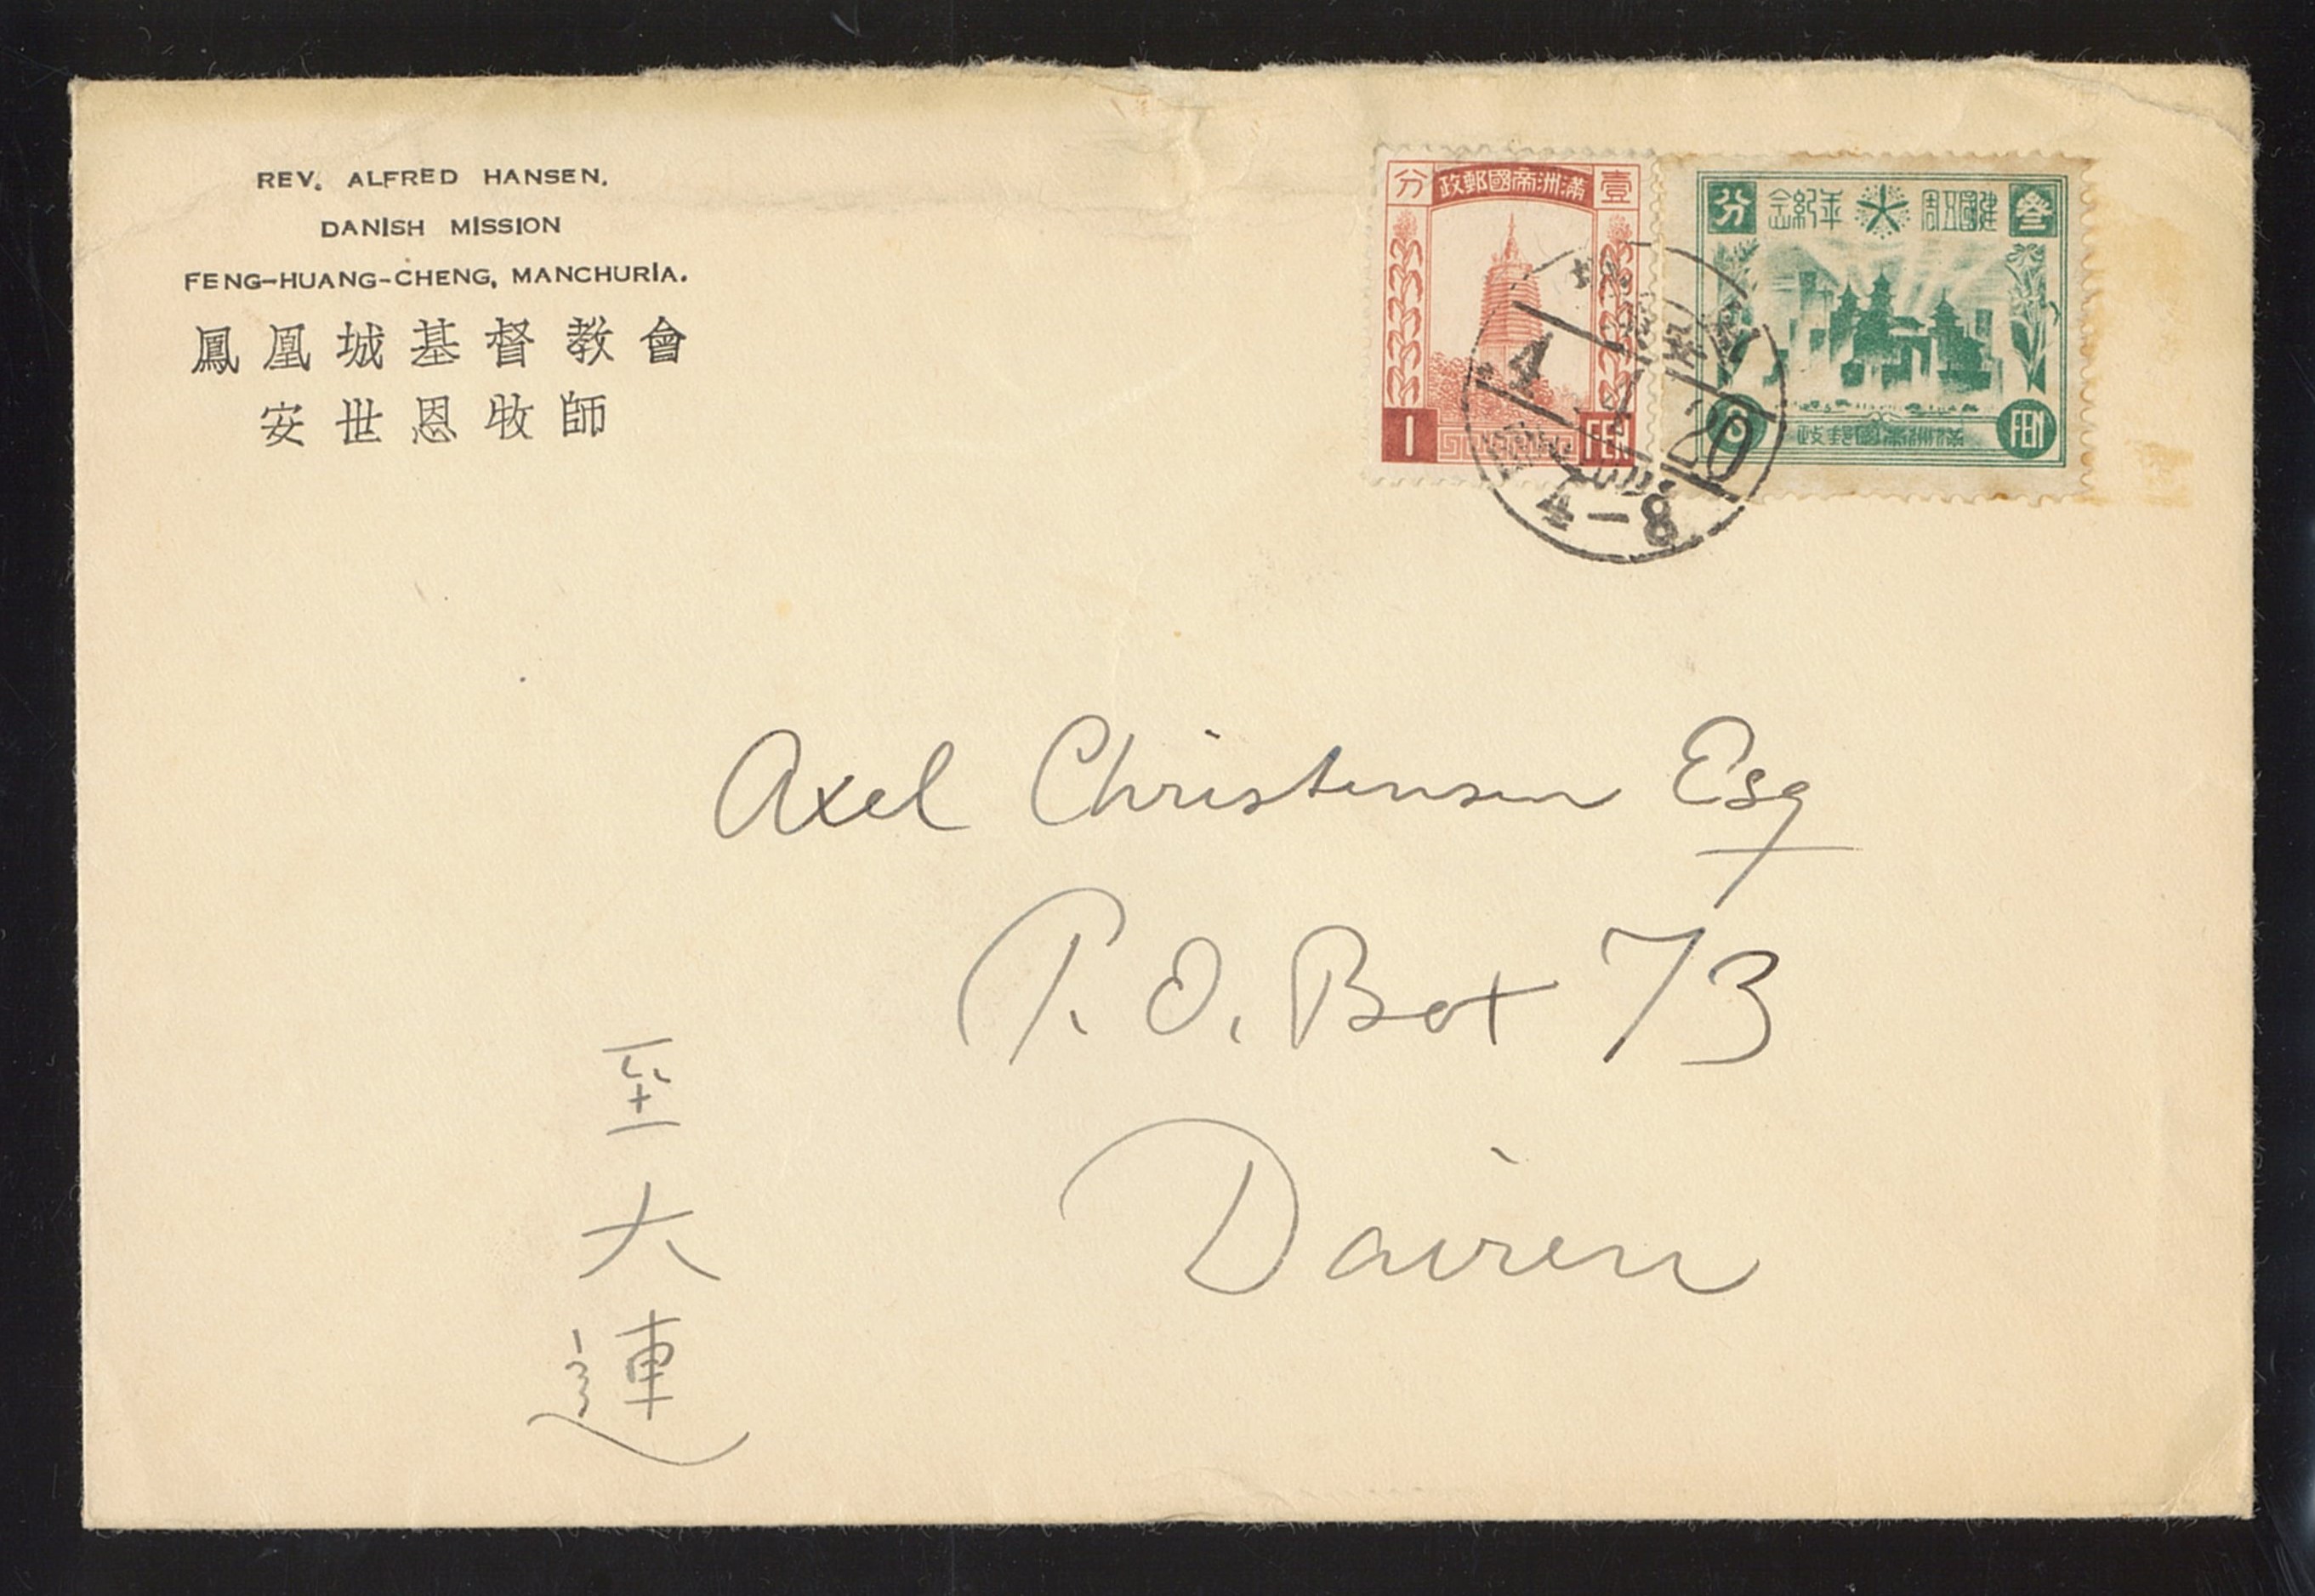 REV. ALFRED HANSEN.
DANISH MISSION
FENG-HUANG-CHENG, MANCHURIA.
鳳凰城基督教會
安世恩牧師
分 政郵國帝洲滿 壹
1 FEN
分 念紀年 周五國建 叁
3 FEN
4
20
4-8
Axel Christensen Esq
P. O. Box 73
Dairen
至
大
連